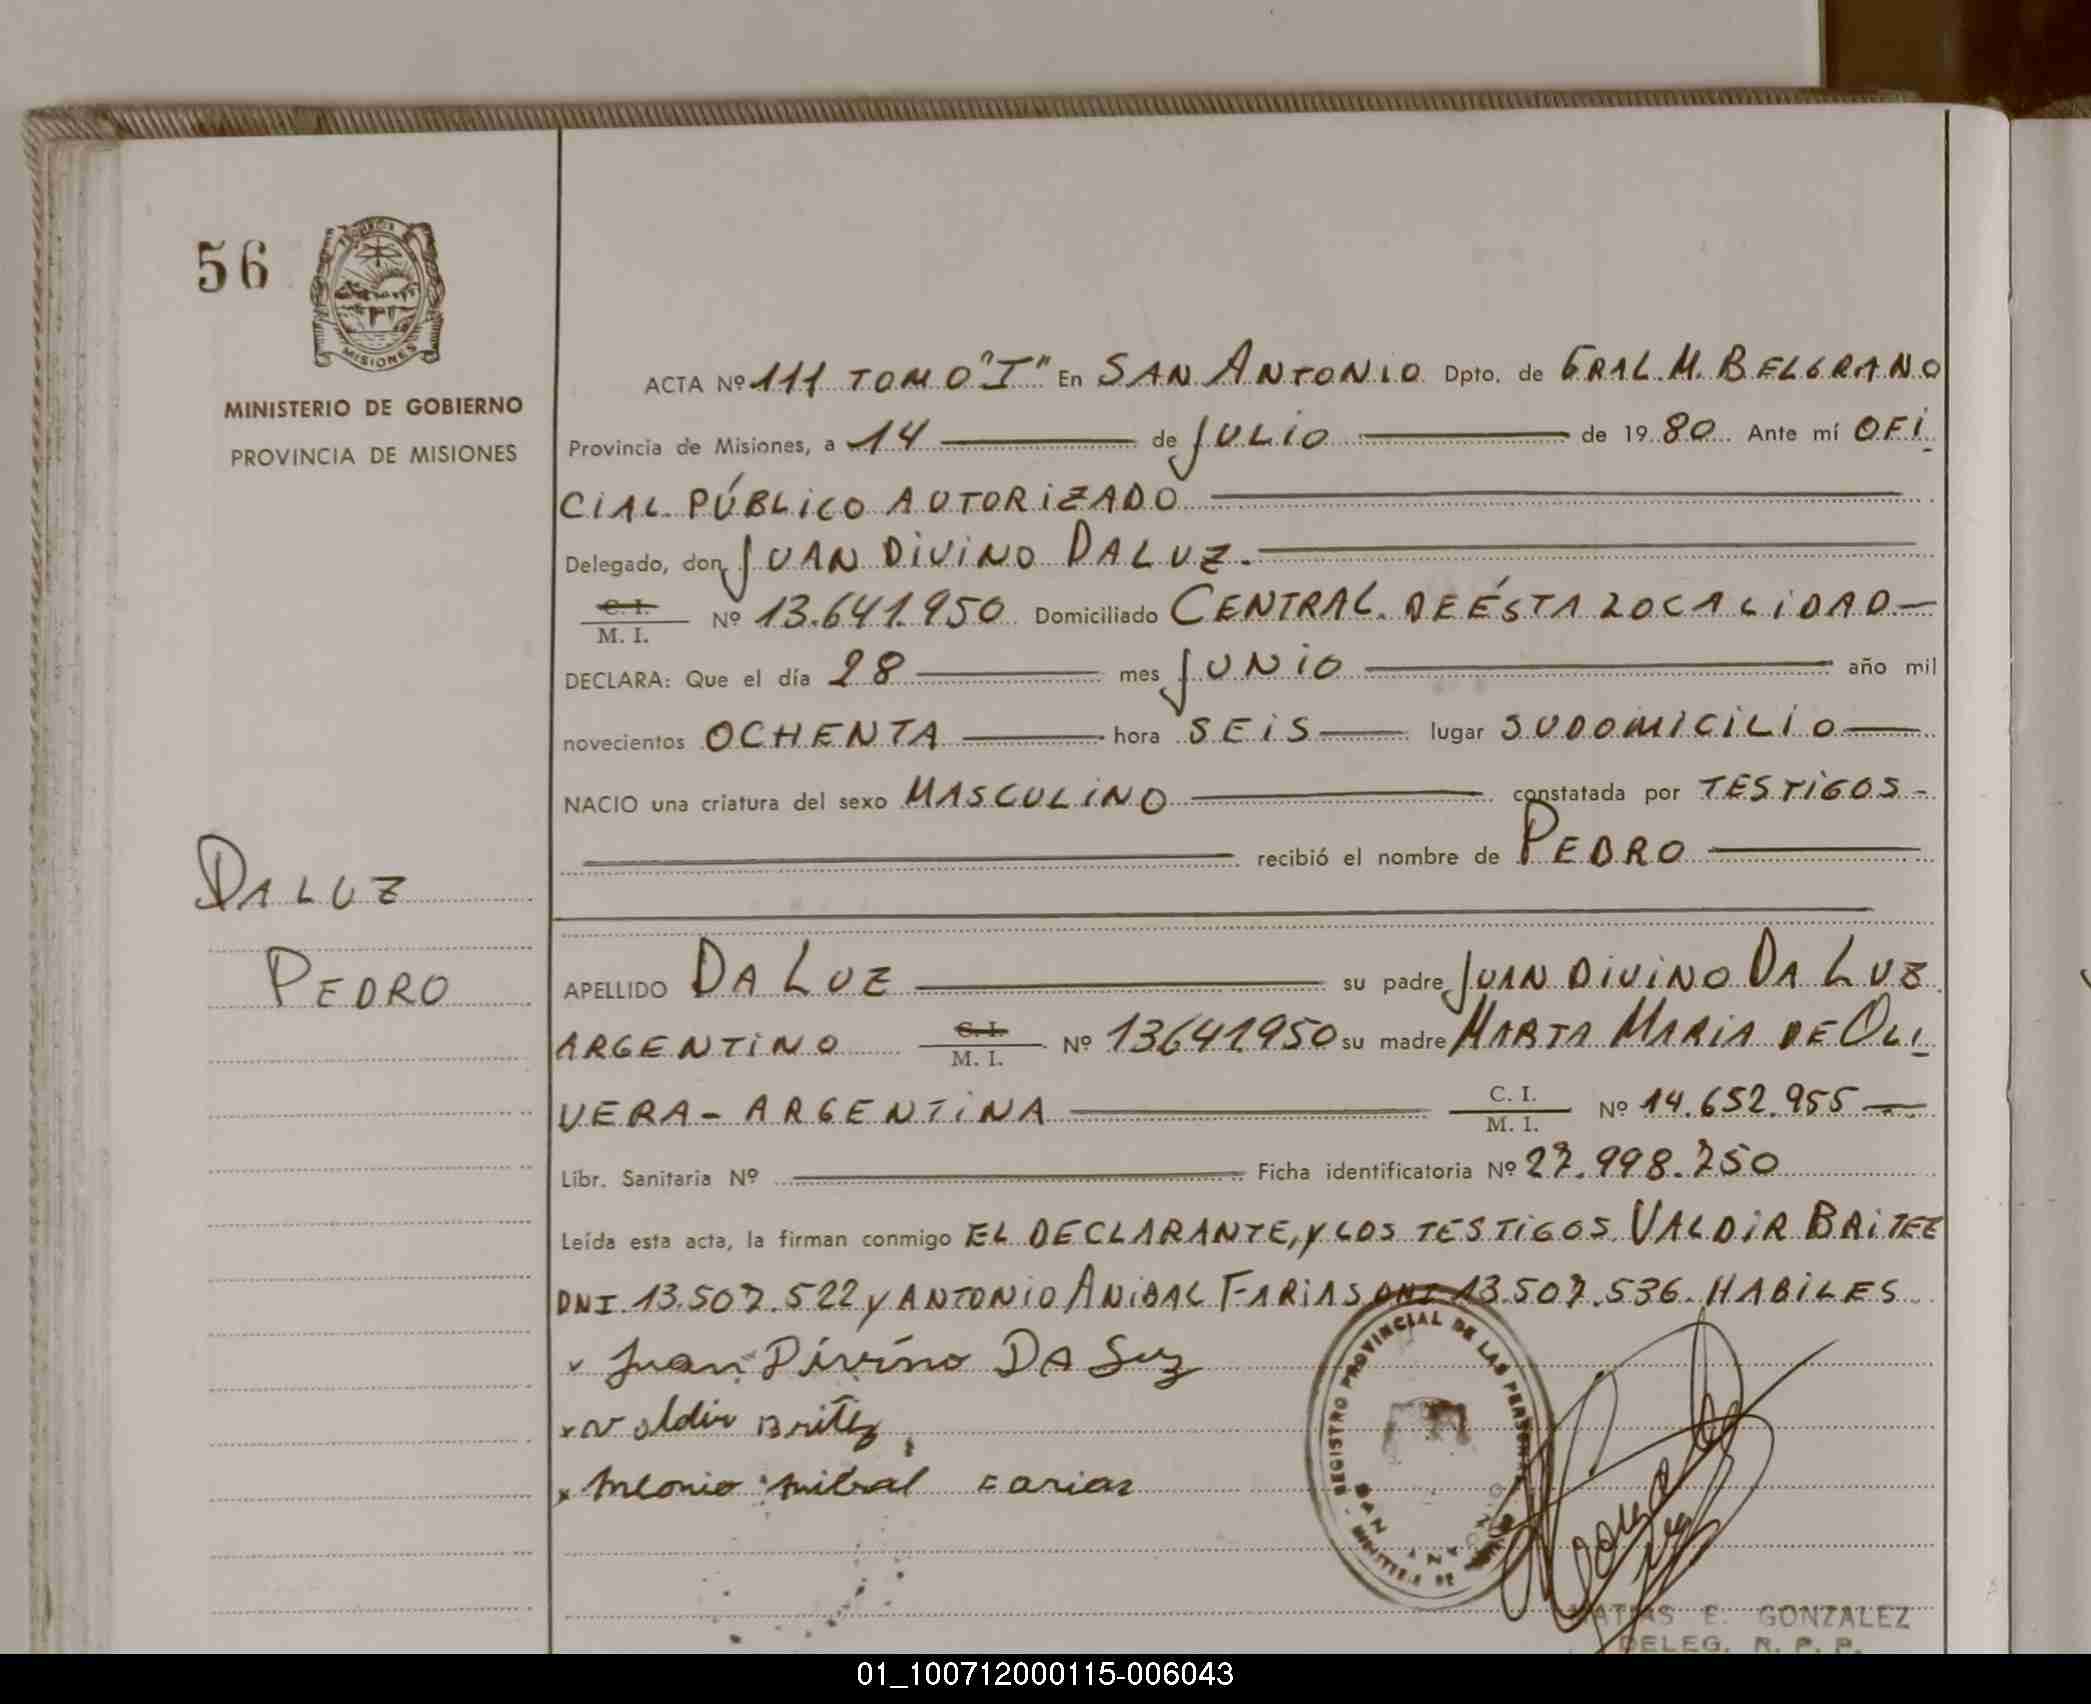 56
MISIONES
MINISTERIO DE GOBIERNO
PROVINCIA DE MISIONES
DA LUZ
PEDRO
ACTA Nº 111 TOMO "I" En SAN ANTONIO Dpto. de GRAL. M. BELGRANO
Provincia de Misiones, a 14 de JULIO de 19 80 Ante mí OFI
CIAL PÚBLICO AUTORIZADO
Delegado, don JUAN DIVINO DA LUZ.
C. I.
M. I. Nº 13.641.950 Domiciliado CENTRAL DE ÉSTA LOCALIDAD
DECLARA: Que el día 28 mes JUNIO año mil
novecientos OCHENTA hora SEIS lugar SU DOMICILIO
NACIO una criatura del sexo MASCULINO constatada por TESTIGOS
recibió el nombre de PEDRO
APELLIDO DA LUZ su padre JUAN DIVINO DA LUZ
ARGENTINO C. I. M. I. Nº 13641950 su madre MARTA MARIA DE OLI
VERA - ARGENTINA C. I. M. I. Nº 14.652.955
Libr. Sanitaria Nº Ficha identificatoria Nº 27.998.750
Leída esta acta, la firman conmigo EL DECLARANTE, Y LOS TESTIGOS VALDIR BRITEE
DNI 13.507.522 Y ANTONIO ANIBAL FARIAS DNI 13.507.536. HABILES
Juan Divino DA Luz
Valdir Britez
Antonio Anibal Farias
REGISTRO PROVINCIAL DE LAS PERSONAS
SAN ANTONIO
MATIAS E. GONZALEZ
DELEG. R. P. P.
01_100712000115-006043